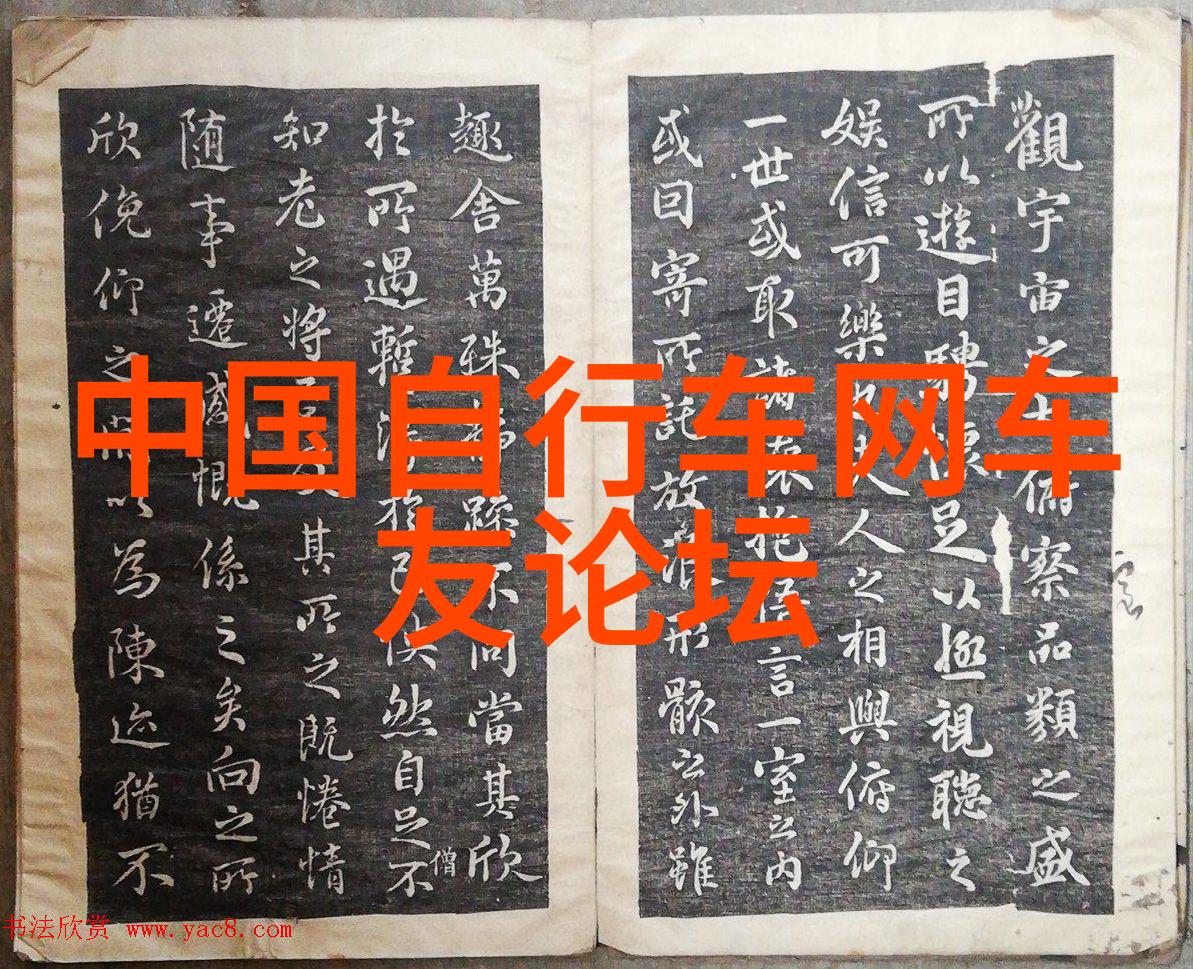 中国自行车网车
友论坛
觀宇宙之大俯察品類之盛
所以遊目騁懷足以極視聽之
娛信可樂也夫人之相與俯仰
一世或取諸懷抱悟言一室之內
或因寄所託放浪形骸之外雖
趣舍萬殊靜躁不同當其欣
於所遇暫得於己怏然自足不
僧
知老之將至及其所之既惓情
随事遷感慨係之矣向之所
欣俛仰之間以為陳迹猶不
书法欣赏 www.yac8.com